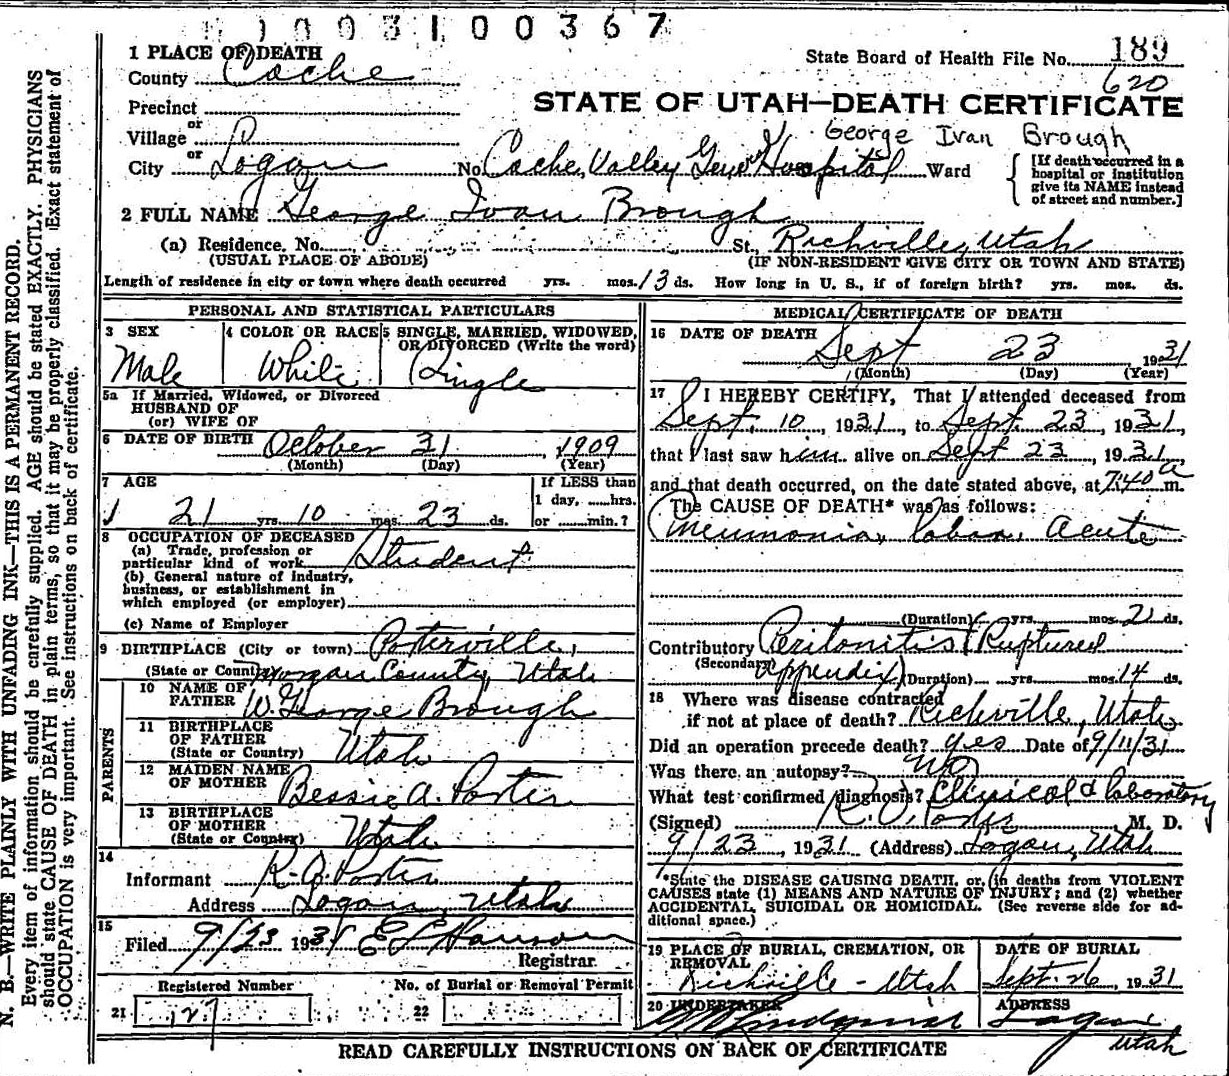 1003100367
State Board of Health File No. 189
620
STATE OF UTAH—DEATH CERTIFICATE
George Ivan Brough
1 PLACE OF DEATH
County Cache
Precinct
or
Village
or
City Logan No. Cache Valley General Hospital Ward
[If death occurred in a hospital or institution give its NAME instead of street and number.]
2 FULL NAME George Ivan Brough
(a) Residence. No. St. Richville, Utah
(USUAL PLACE OF ABODE) (IF NON-RESIDENT GIVE CITY OR TOWN AND STATE)
Length of residence in city or town where death occurred yrs. mos. 13 ds. How long in U. S., if of foreign birth? yrs. mos. ds.
PERSONAL AND STATISTICAL PARTICULARS
3 SEX
Male
4 COLOR OR RACE
White
5 SINGLE, MARRIED, WIDOWED, OR DIVORCED (Write the word)
Single
5a If Married, Widowed, or Divorced
HUSBAND OF
(or) WIFE OF
6 DATE OF BIRTH October 31, 1909
(Month) (Day) (Year)
7 AGE
21 yrs. 10 mos. 23 ds.
If LESS than
1 day, ......hrs.
or ......min.?
8 OCCUPATION OF DECEASED
(a) Trade, profession or
particular kind of work Student
(b) General nature of industry,
business, or establishment in
which employed (or employer)
(c) Name of Employer
9 BIRTHPLACE (City or town) Porterville,
(State or Country) Morgan County, Utah
PARENTS
10 NAME OF FATHER W. George Brough
11 BIRTHPLACE OF FATHER (State or Country) Utah
12 MAIDEN NAME OF MOTHER Bessie A. Porter
13 BIRTHPLACE OF MOTHER (State or Country) Utah
14
Informant R. O. Porter
Address Logan, Utah
15
Filed 9/23 1931 Hanson
Registrar
Registered Number No. of Burial or Removal Permit
21 127 22
MEDICAL CERTIFICATE OF DEATH
16 DATE OF DEATH
Sept 23 1931
(Month) (Day) (Year)
17 I HEREBY CERTIFY, That I attended deceased from
Sept. 10, 1931, to Sept. 23, 1931,
that I last saw him alive on Sept 23, 1931
and that death occurred, on the date stated above, at 7:40 a m.
The CAUSE OF DEATH* was as follows:
Pneumonia, lobar, acute
(Duration) yrs. mos. 2 ds.
Contributory Peritonitis (Ruptured
(Secondary) appendix) (Duration) yrs. mos. 14 ds.
18 Where was disease contracted
if not at place of death? Richville, Utah
Did an operation precede death? yes Date of 9/11/31
Was there an autopsy? No
What test confirmed diagnosis? Clinical & laboratory
(Signed) R. O. Porter M. D.
9/23, 1931 (Address) Logan, Utah
*State the DISEASE CAUSING DEATH, or, in deaths from VIOLENT
CAUSES state (1) MEANS AND NATURE OF INJURY; and (2) whether
ACCIDENTAL, SUICIDAL OR HOMICIDAL. (See reverse side for ad-
ditional space.)
19 PLACE OF BURIAL, CREMATION, OR REMOVAL
Richville - Utah
DATE OF BURIAL
Sept. 26, 1931
20 UNDERTAKER
Lindquist
ADDRESS
Logan
Utah
READ CAREFULLY INSTRUCTIONS ON BACK OF CERTIFICATE
N. B.—WRITE PLAINLY WITH UNFADING INK—THIS IS A PERMANENT RECORD.
Every item of information should be carefully supplied. AGE should be stated EXACTLY. PHYSICIANS
should state CAUSE OF DEATH in plain terms, so that it may be properly classified. Exact statement of
OCCUPATION is very important. See instructions on back of certificate.